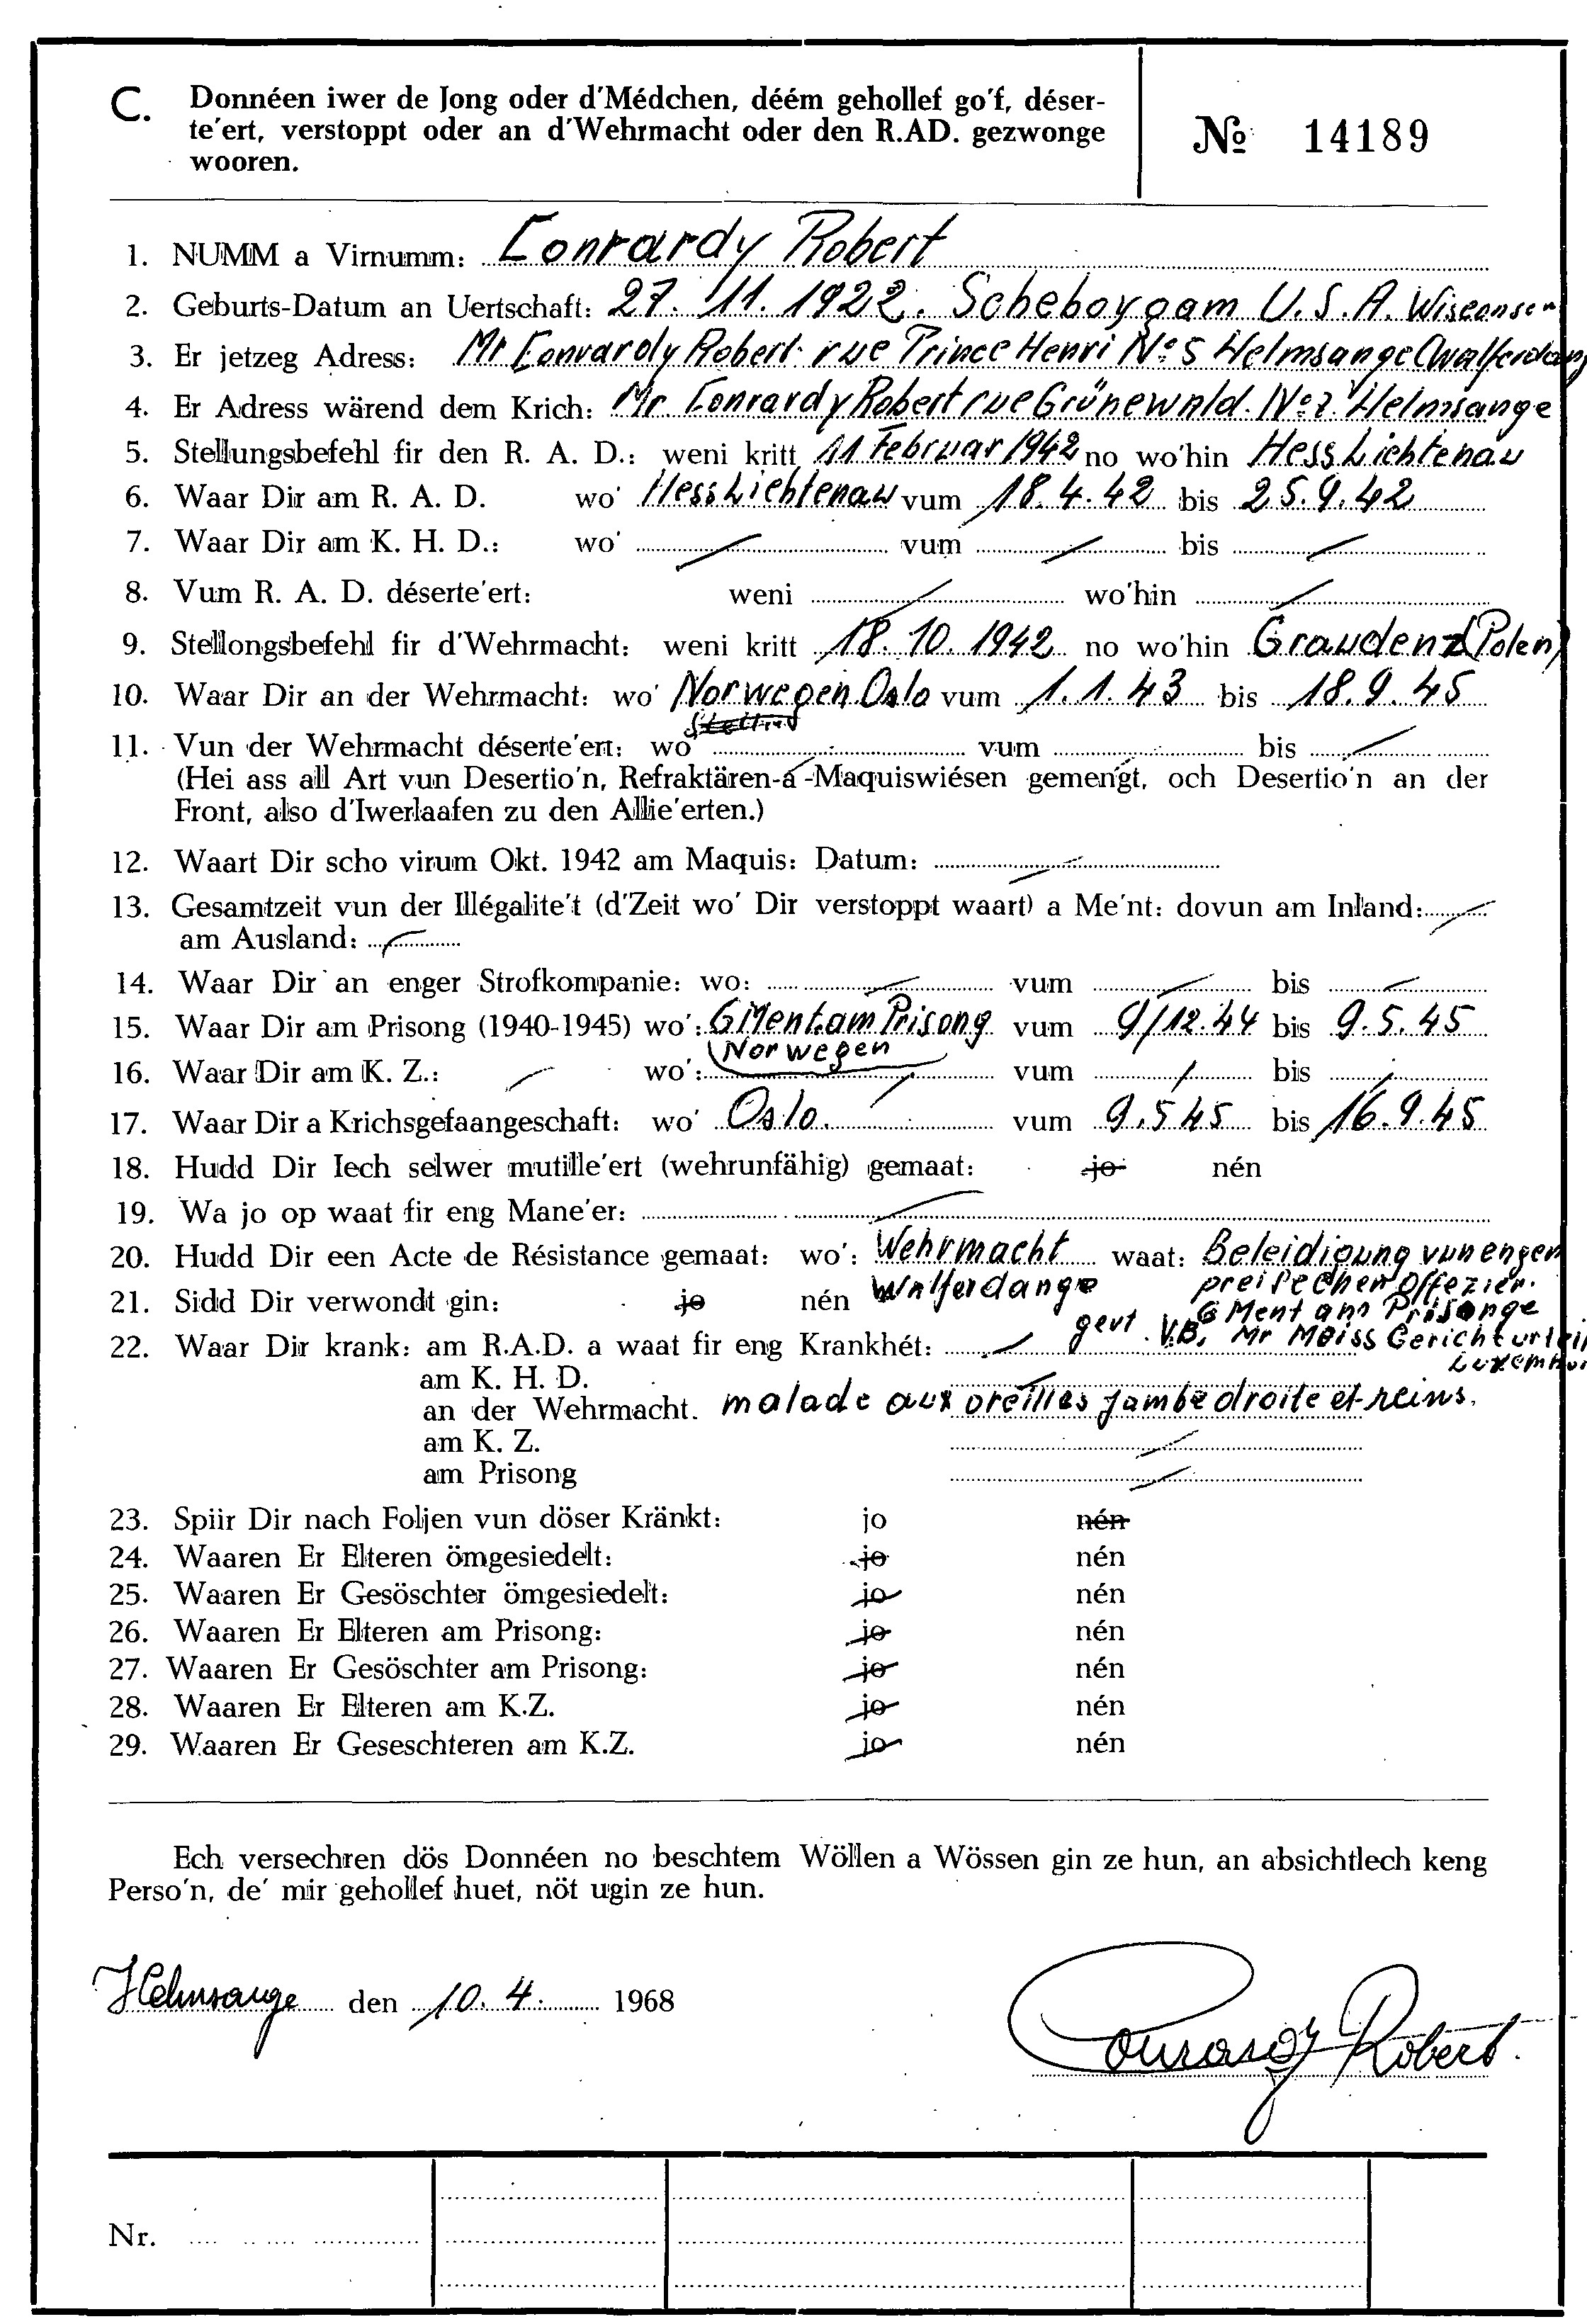 C. Donnéen iwer de Jong oder d'Médchen, déém gehollef go'f, déser-
te'ert, verstoppt oder an d'Wehrmacht oder den R.AD. gezwonge
wooren.
№ 14189
1. NUMM a Virnumm: Conrardy Robert
2. Geburts-Datum an Uertschaft: 27. 11. 1922. Scheboygam U.S.A. Wisconsen
3. Er jetzeg Adress: Mr Conrardy Robert rue Prince Henri № 5 Helmsange (Walferdang
4. Er Adress wärend dem Krich: Mr. Conrardy Robert rue Grünewald. № 7. Helmsange
5. Stellungsbefehl fir den R. A. D.: weni kritt 11 Februar 1942 no wo'hin Hess Lichtenau
6. Waar Dir am R. A. D. wo' Hess Lichtenau vum 18.4.42 bis 25.9.42
7. Waar Dir am K. H. D.: wo' / vum / bis /
8. Vum R. A. D. déserte'ert: weni / wo'hin /
9. Stellongsbefehl fir d'Wehrmacht: weni kritt 18. 10. 1942 no wo'hin Graudenz (Polen)
10. Waar Dir an der Wehrmacht: wo' Norwegen Oslo vum 1.1.43 bis 18.9.45
Stettin
11. Vun der Wehrmacht déserte'ert: wo' vum bis /
(Hei ass all Art vun Desertio'n, Refraktären-a'-Maquiswiésen gemengt, och Desertio'n an der
Front, also d'Iwerlaafen zu den Allie'erten.)
12. Waart Dir scho virum Okt. 1942 am Maquis: Datum: /
13. Gesamtzeit vun der Illégalite't (d'Zeit wo' Dir verstoppt waart) a Me'nt: dovun am Inland: /
am Ausland: /
14. Waar Dir an enger Strofkompanie: wo: / vum / bis /
15. Waar Dir am Prison̈g (1940-1945) wo': 6 Ment. am Prisong vum 9/12.44 bis 9.5.45
Norwegen
16. Waar Dir am K. Z.: / wo': / vum / bis /
17. Waar Dir a Krichsgefaangeschaft: wo' Oslo. vum 9.5 45 bis 16.9.45
18. Hudd Dir Iech selwer mutille'ert (wehrunfähig) gemaat: jo nén
19. Wa jo op waat fir eng Mane'er: /
20. Hudd Dir een Acte de Résistance gemaat: wo': Wehrmacht waat: Beleidigung vun engem
preisechen Offezier.
21. Sidd Dir verwondt gin: jo nén Walferdange
6 Ment am Prisonge
22. Waar Dir krank: am R.A.D. a waat fir eng Krankhét: / gert V.B. Mr Meiss Gericht
am K. H. D.
an der Wehrmacht. malade aux oreilles jambe droite et reins.
am K. Z. /
am Prisong /
23. Spiir Dir nach Foljen vun döser Kränkt: jo nén
24. Waaren Er Elteren ömgesiedelt: jo nén
25. Waaren Er Gesöschter ömgesiedelt: jo nén
26. Waaren Er Elteren am Prisong: jo nén
27. Waaren Er Gesöschter am Prisong: jo nén
28. Waaren Er Elteren am K.Z. jo nén
29. Waaren Er Geseschteren am K.Z. jo nén
Ech versechren dös Donnéen no beschtem Wöllen a Wössen gin ze hun, an absichtlech keng
Perso'n, de' mir gehollef huet, nöt ugin ze hun.
Helmsange den 10. 4. 1968
Conrardy Robert.
Nr.